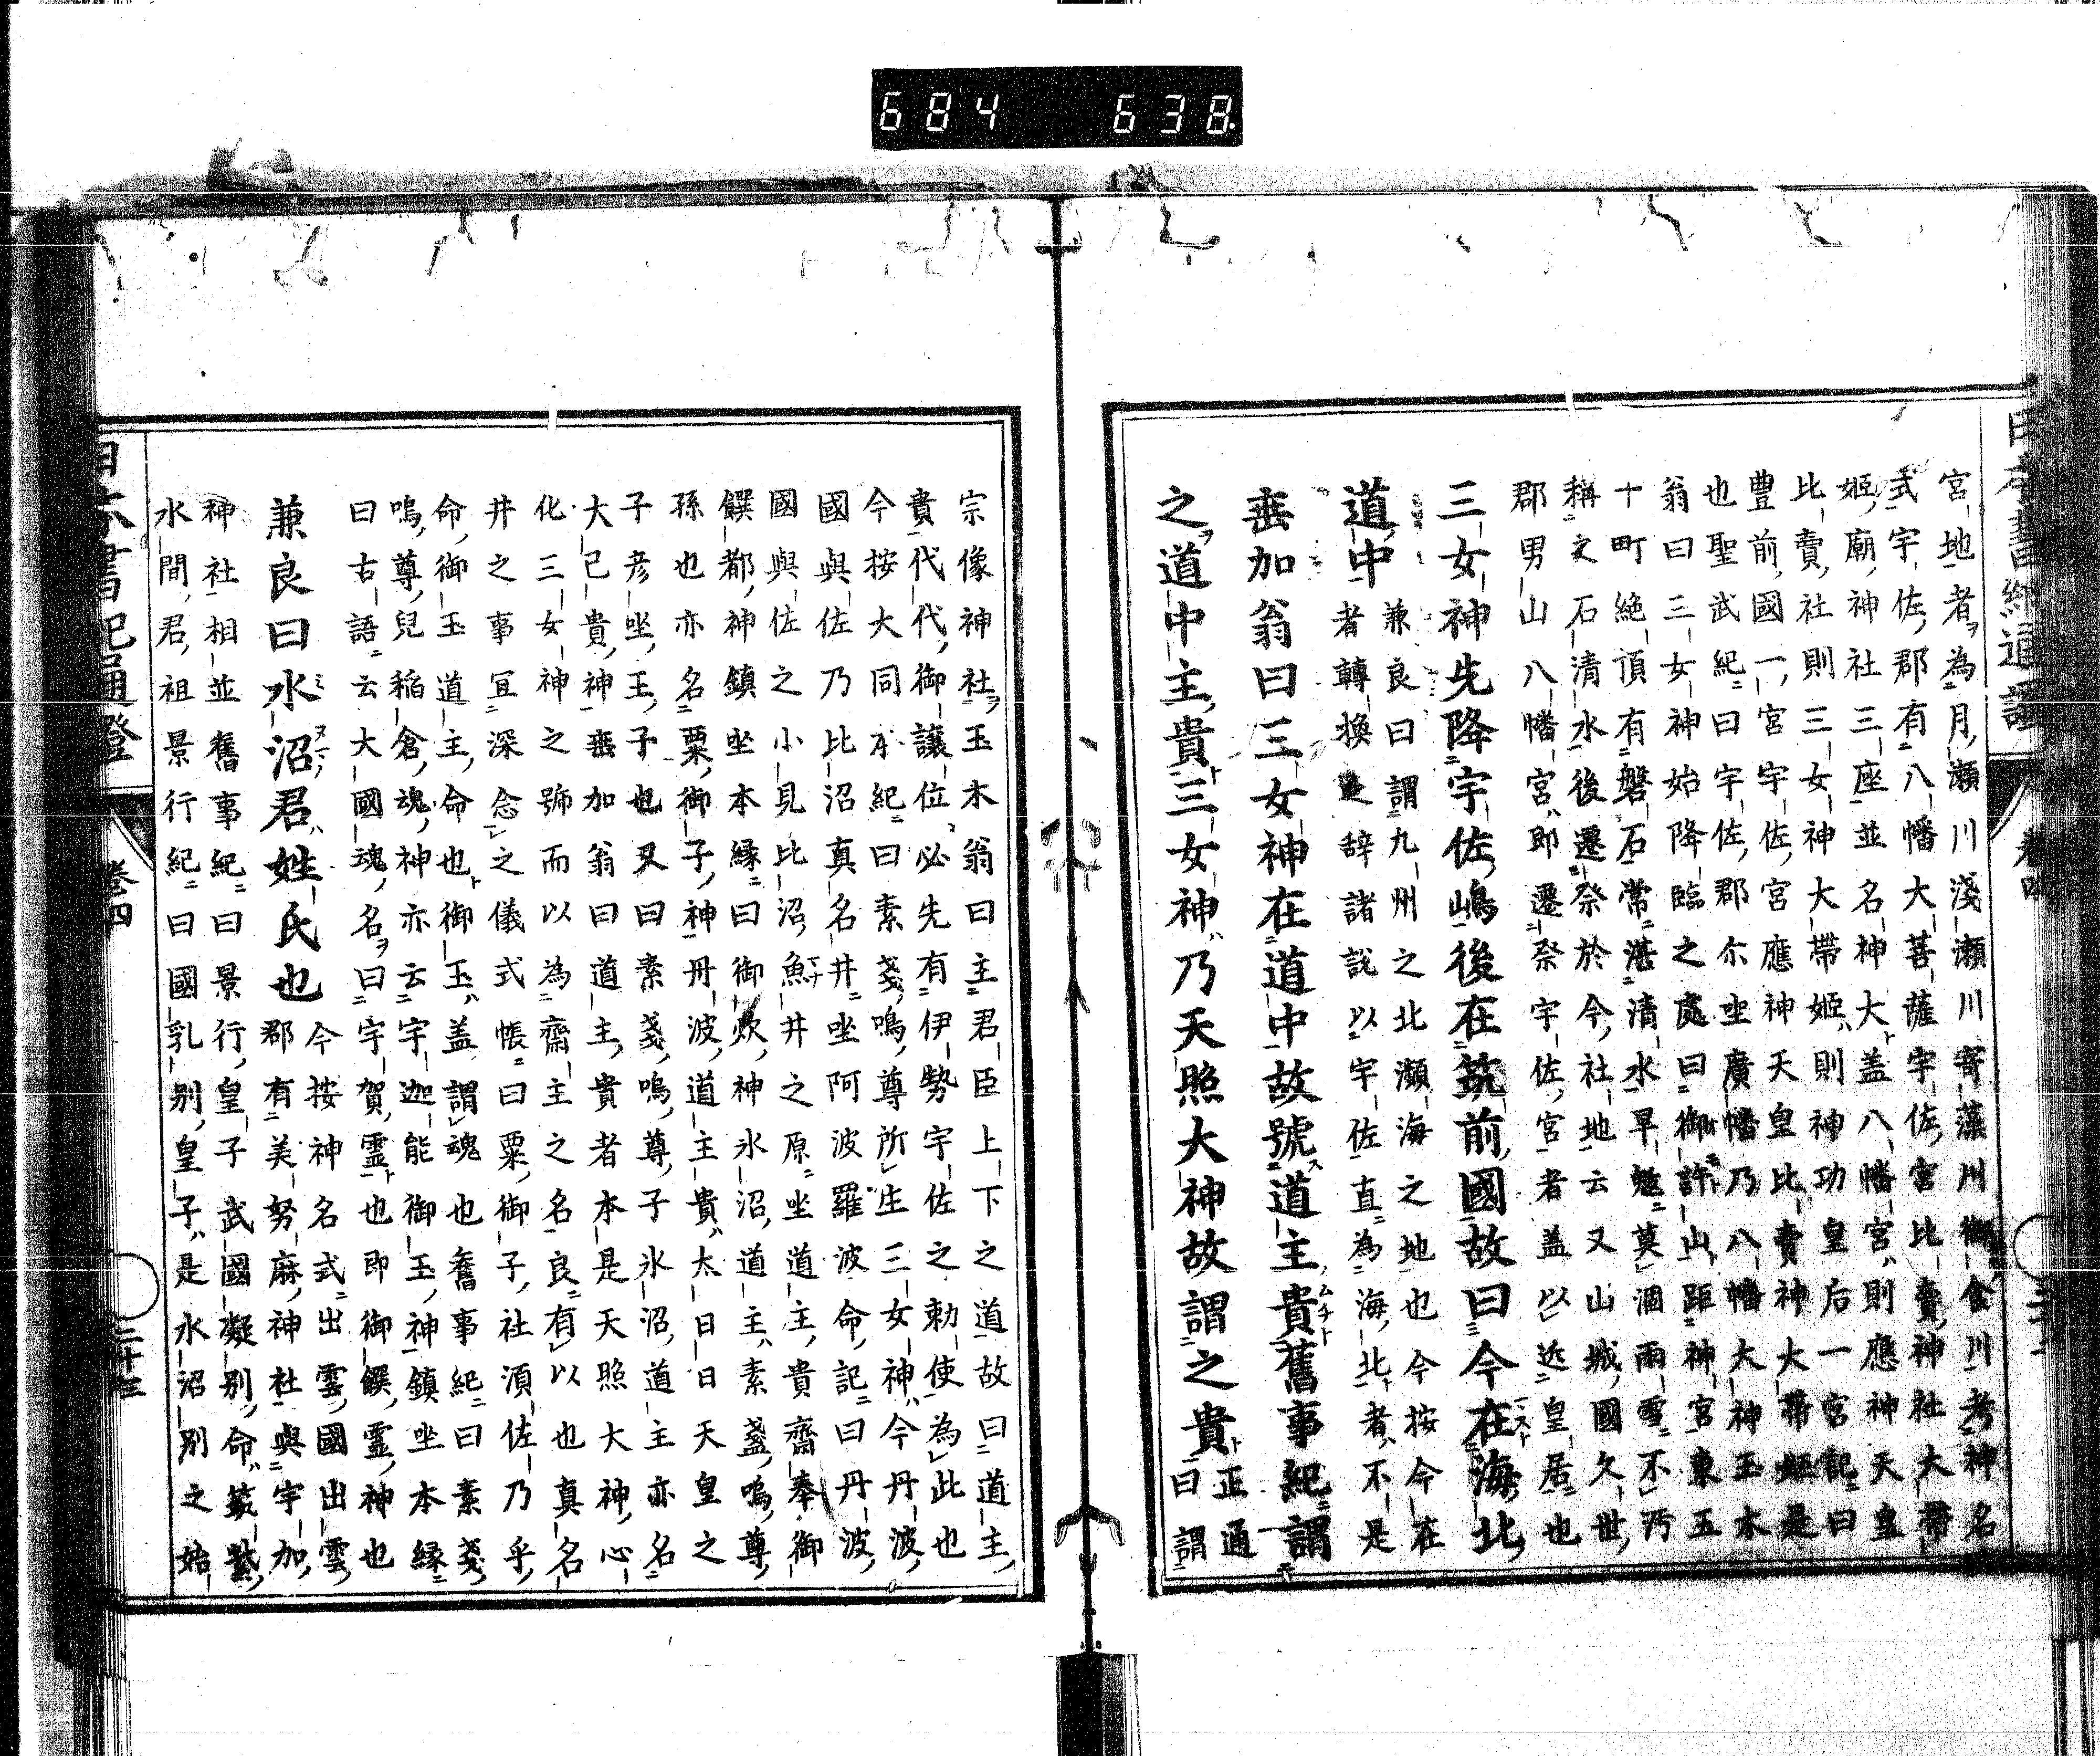 684 638
宮地者為月瀬川淺瀬川寄藻川御食川考神名
式宇佐郡有八幡大菩薩宇佐宮比賣神社大帶
姫廟神社三座並名神大盖八幡宮則應神天皇
比賣社則三女神大帶姫則神功皇后一宮記曰
豊前國一宮宇佐宮應神天皇比賣神大帶姫是
也聖武紀曰宇佐郡尓坐廣幡乃八幡大神玉木
翁曰三女神始降臨之處曰御許山距神宮東五
十町絶頂有磐石常湛清水旱魃莫涸雨雪不汚
稱文石清水後遷祭於今社地云又山城國久世
郡男山八幡宮即遷祭宇佐宮者盖以近皇居也
三女神先降宇佐嶋後在筑前國故曰今在海北
道中
兼良曰謂九州之北瀬海之地也今按今在
者轉換之辞諸説以宇佐直為海北者不是
垂加翁曰三女神在道中故號道主貴舊事紀謂
之道中主貴三女神乃天照大神故謂之貴
正通
曰謂
宗像神社玉木翁曰主君臣上下之道故曰道主
貴代代御讓位必先有伊勢宇佐之勅使為此也
今按大同本紀曰素戔嗚尊所生三女神今丹波
國與佐乃比沼真名井坐阿波羅波命記曰丹波
國與佐之小見比沼魚井之原坐道主貴齋奉御
饌都神鎮坐本縁曰御炊神氷沼道主素盞嗚尊
孫也亦名粟御子神丹波道主貴太日日天皇之
子彦坐王子也又曰素戔嗚尊子氷沼道主亦名
大己貴神垂加翁曰道主貴者本是天照大神心
化三女神之號而以為齋主之名良有以也真名
井之事宜深念之儀式帳曰粟御子社須佐乃乎
命御玉道主命也御玉盖謂魂也舊事紀曰素戔
嗚尊兒稲倉魂神亦云宇迦能御玉神鎮坐本縁
曰古語云大國魂名曰宇賀霊也即御饌霊神也
兼良曰水沼君姓氏也
今按神名式出雲國出雲
郡有美努麻神社與宇加
神社相並舊事紀曰景行皇子武國凝別命筑紫
水間君祖景行紀曰國乳別皇子是水沼別之始
日本書紀通證
卷四
三十三